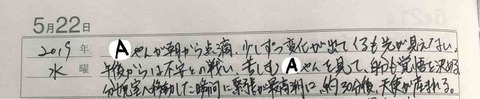 5月22日
2019年 Aちゃんが朝から点滴、少しずつ変化が出てくるも先が見えない。
水曜 午後からは不安との戦い、苦しむAちゃんを見て、自分も覚悟を決める
分娩室へ移動した瞬間に緊張が最高潮に、約30分後、天使が産まれる。